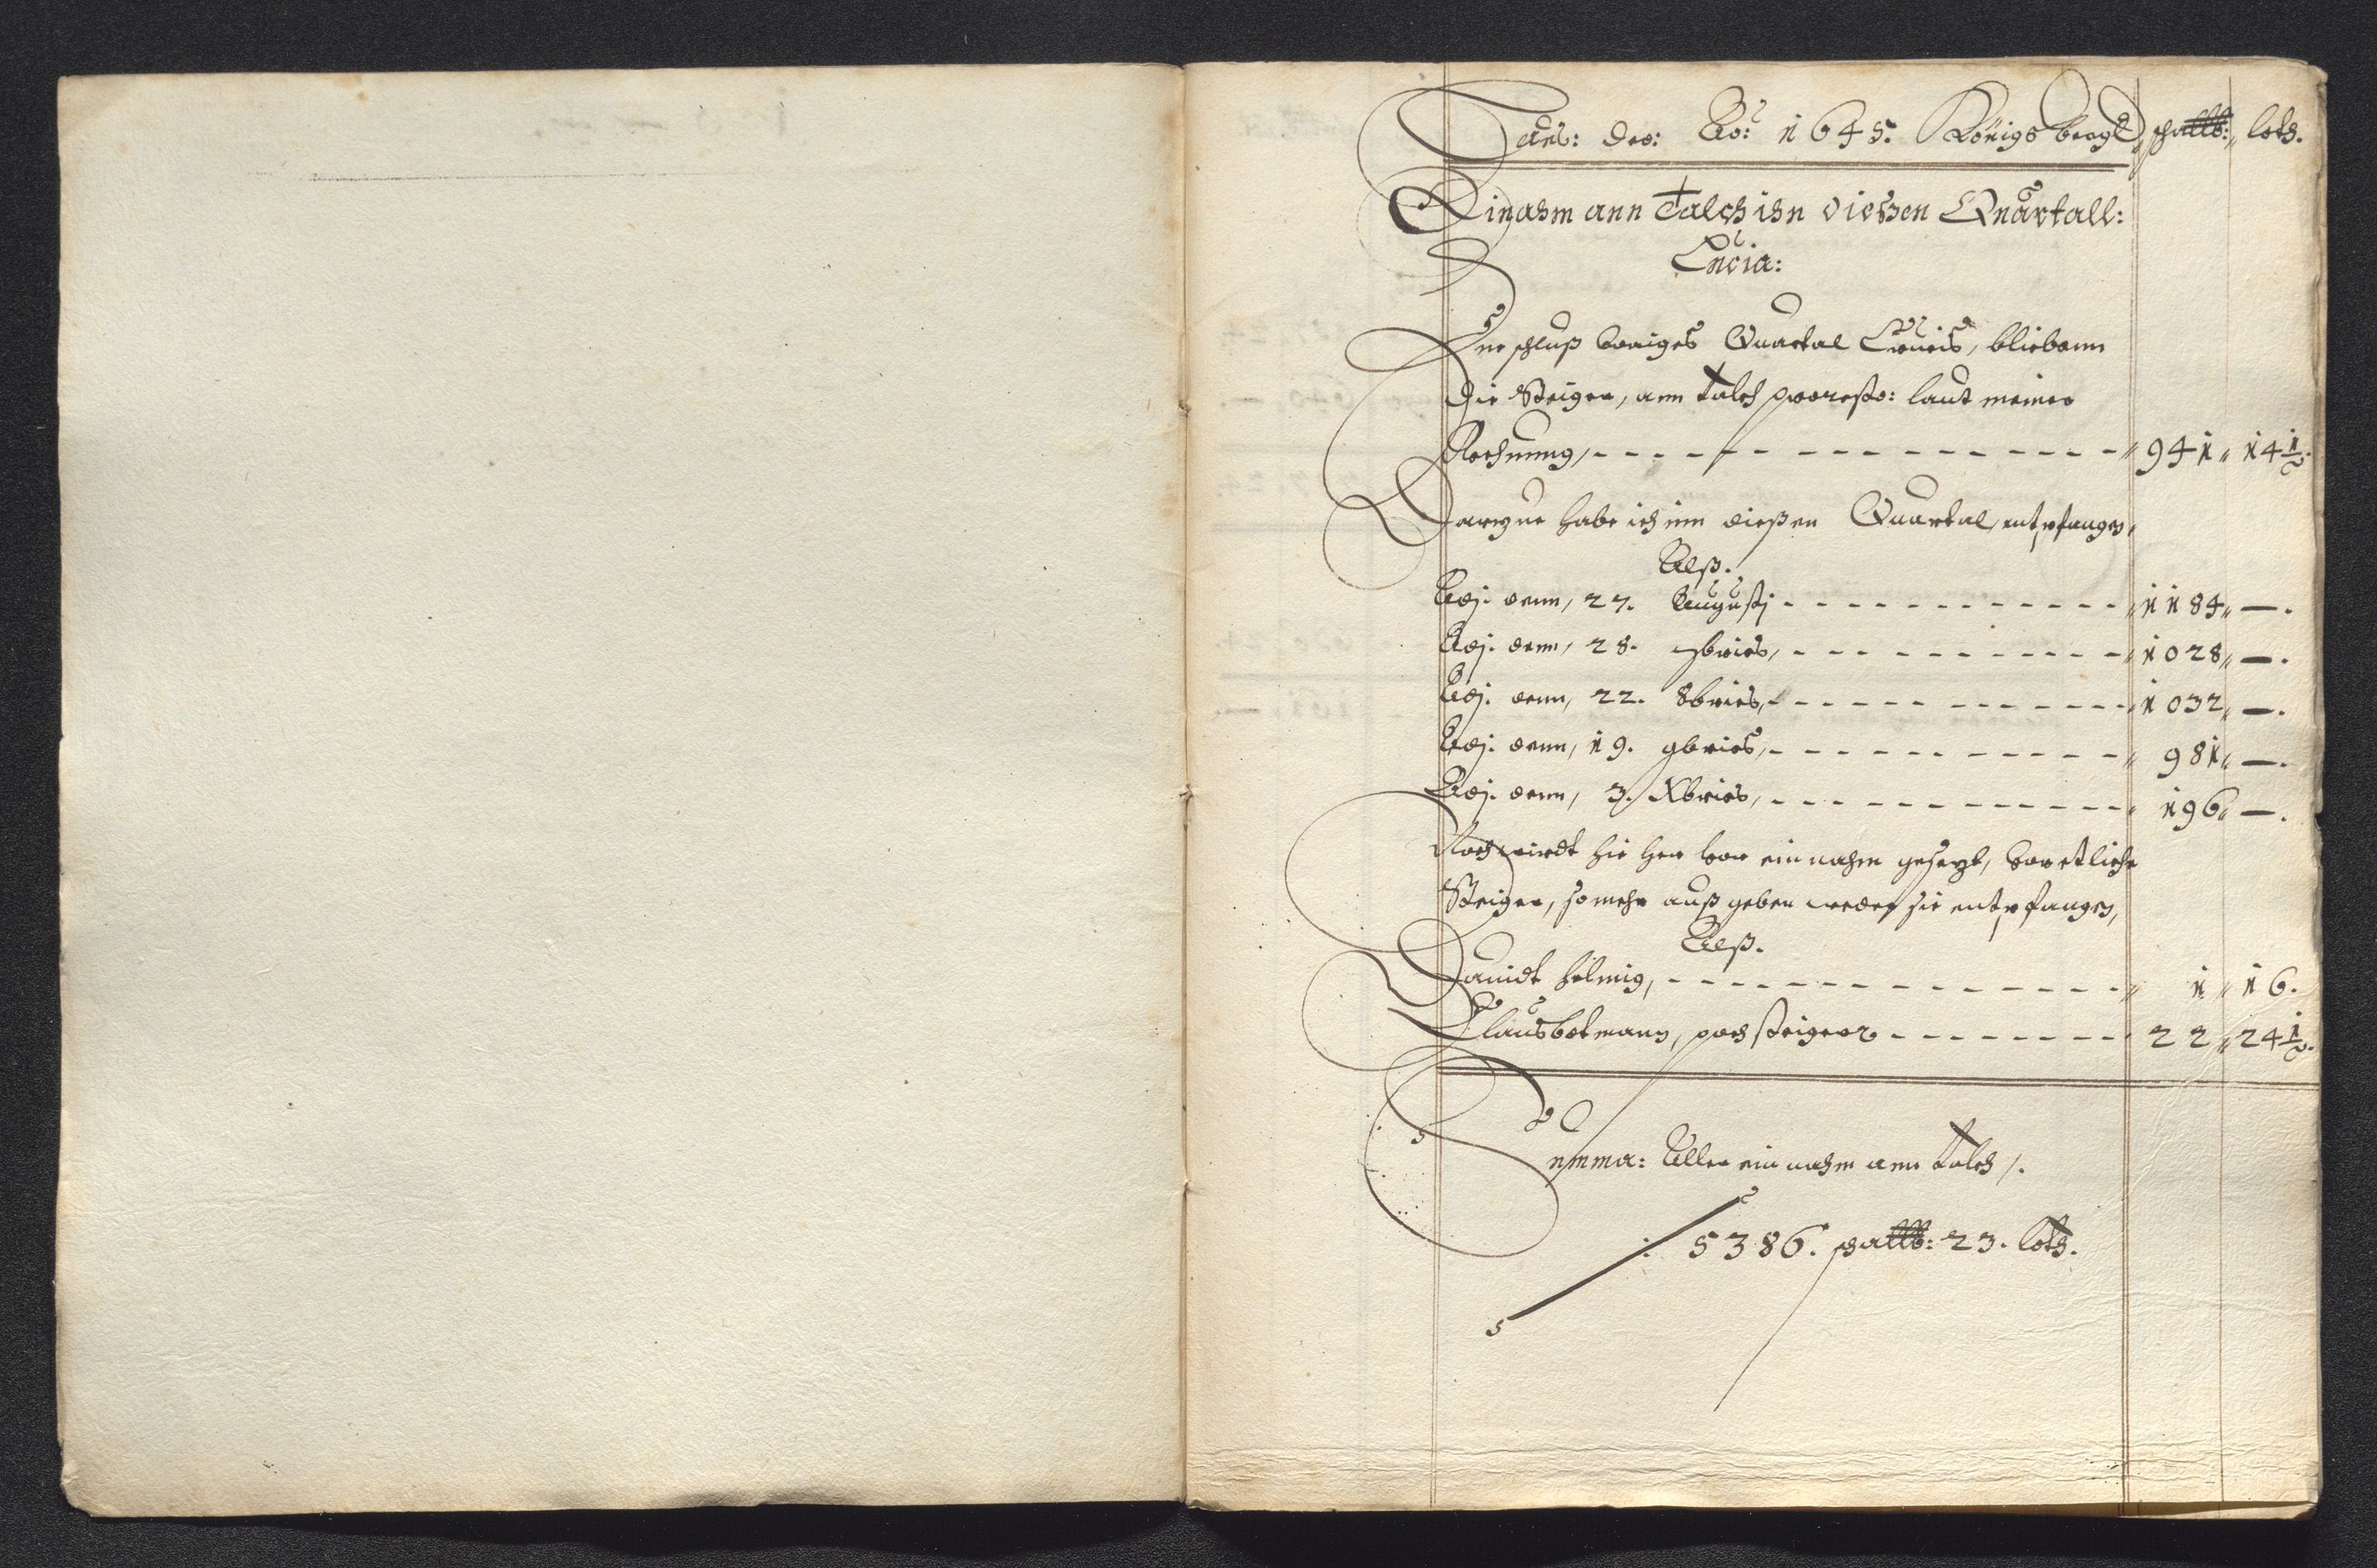 Laus: deo: Ao: 1645. Königs bergk, schallb: loth.
Einahm ann Talch ihn dießen Quartall:
Lucia:
schluß voriges Quartal Crucis, bliebenn
die Steiger, ann talch laut meiner
Rechnung, 941 14½
Darzue habe ich inn dießen Quartal, entpfangen,
Alß.
Adj. denn, 27. Augustj 1184 —.
Adj. denn, 28. 7bries, 1028 —.
Adj. denn, 22. 8bries, 1032 —.
Adj. denn, 19. 9bries, 981 —.
Adj. denn, 3. Xbries, 196 —.
Noch wirdt hie her vor einnahm gesezt, vor etliche
Steiger, so mehr auß geben weder sie entpfangen,
Alß.
Dauidt helmig, 1 16.
Claus botmann, poch steiger 22 24½
Summa: Aller einnahm ann talch /.
5386. schallb: 23. loth.